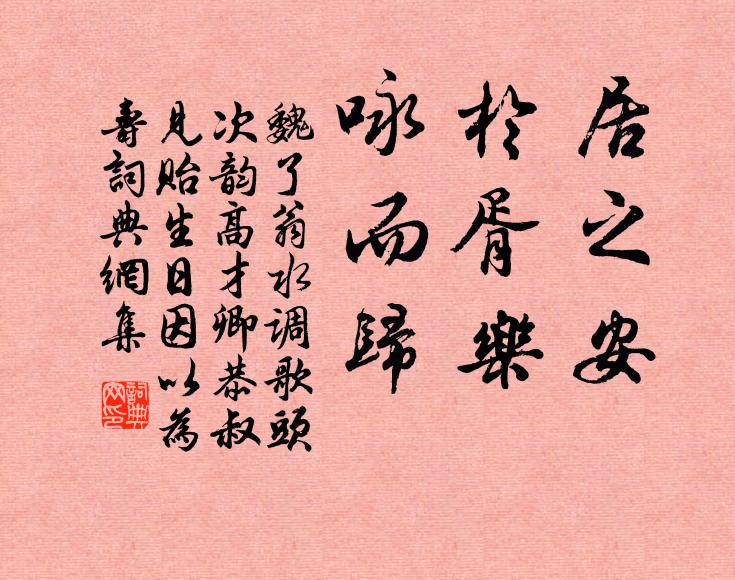 居之安
於胥樂
咏而歸
魏了翁水调歌頭
次韵高才卿恭叔
見貽生日因以為
壽詞典網集
詞典
网印